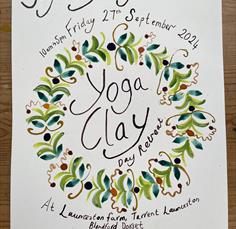 10am-5pm Friday 27th September 2024
Yoga
Clay
Day Retreat
At Launceston Farm, Tarrent Launceston
Blandford Dorset